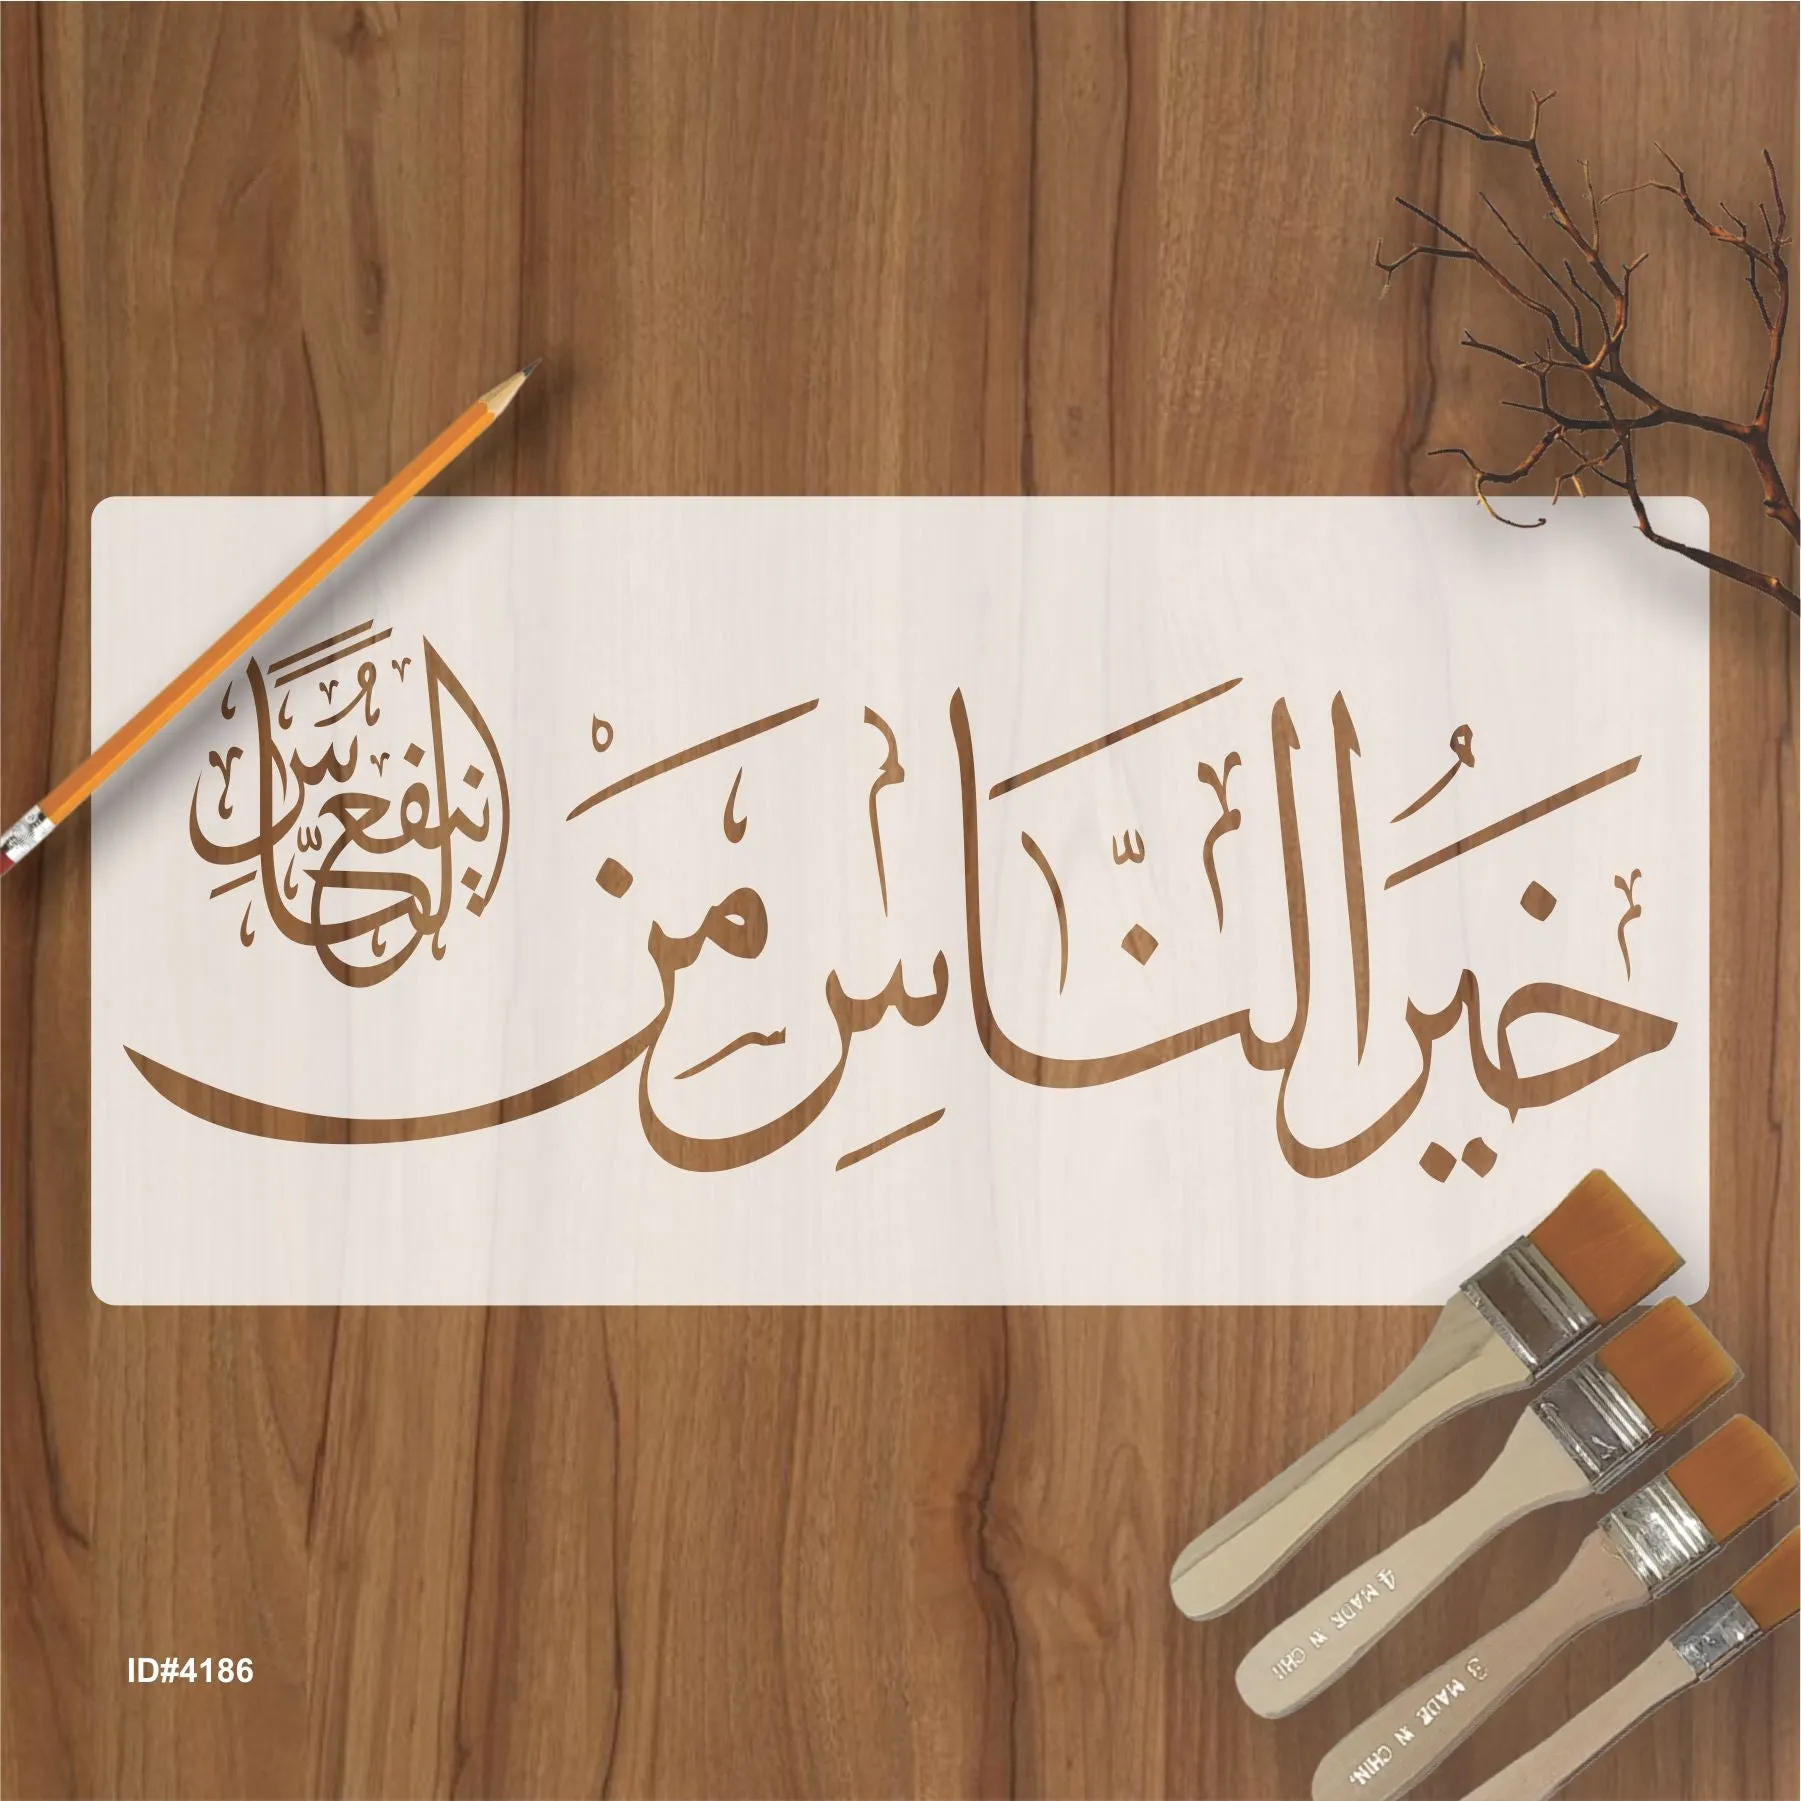 خَيْرُ النَّاسِ مَنْ يَنْفَعُ النَّاسَ
ID#4186
4 MADE IN CHI
3 MADE IN CHIN